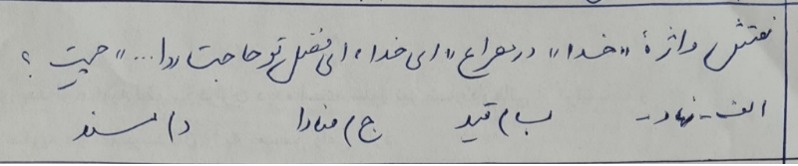 نقش واژهٔ «خدا» در مصراع «ای خدا، ای فضل تو حاجت روا ...» چیست؟
الف - نهاد - ب) قید ج) منادا د) مسند